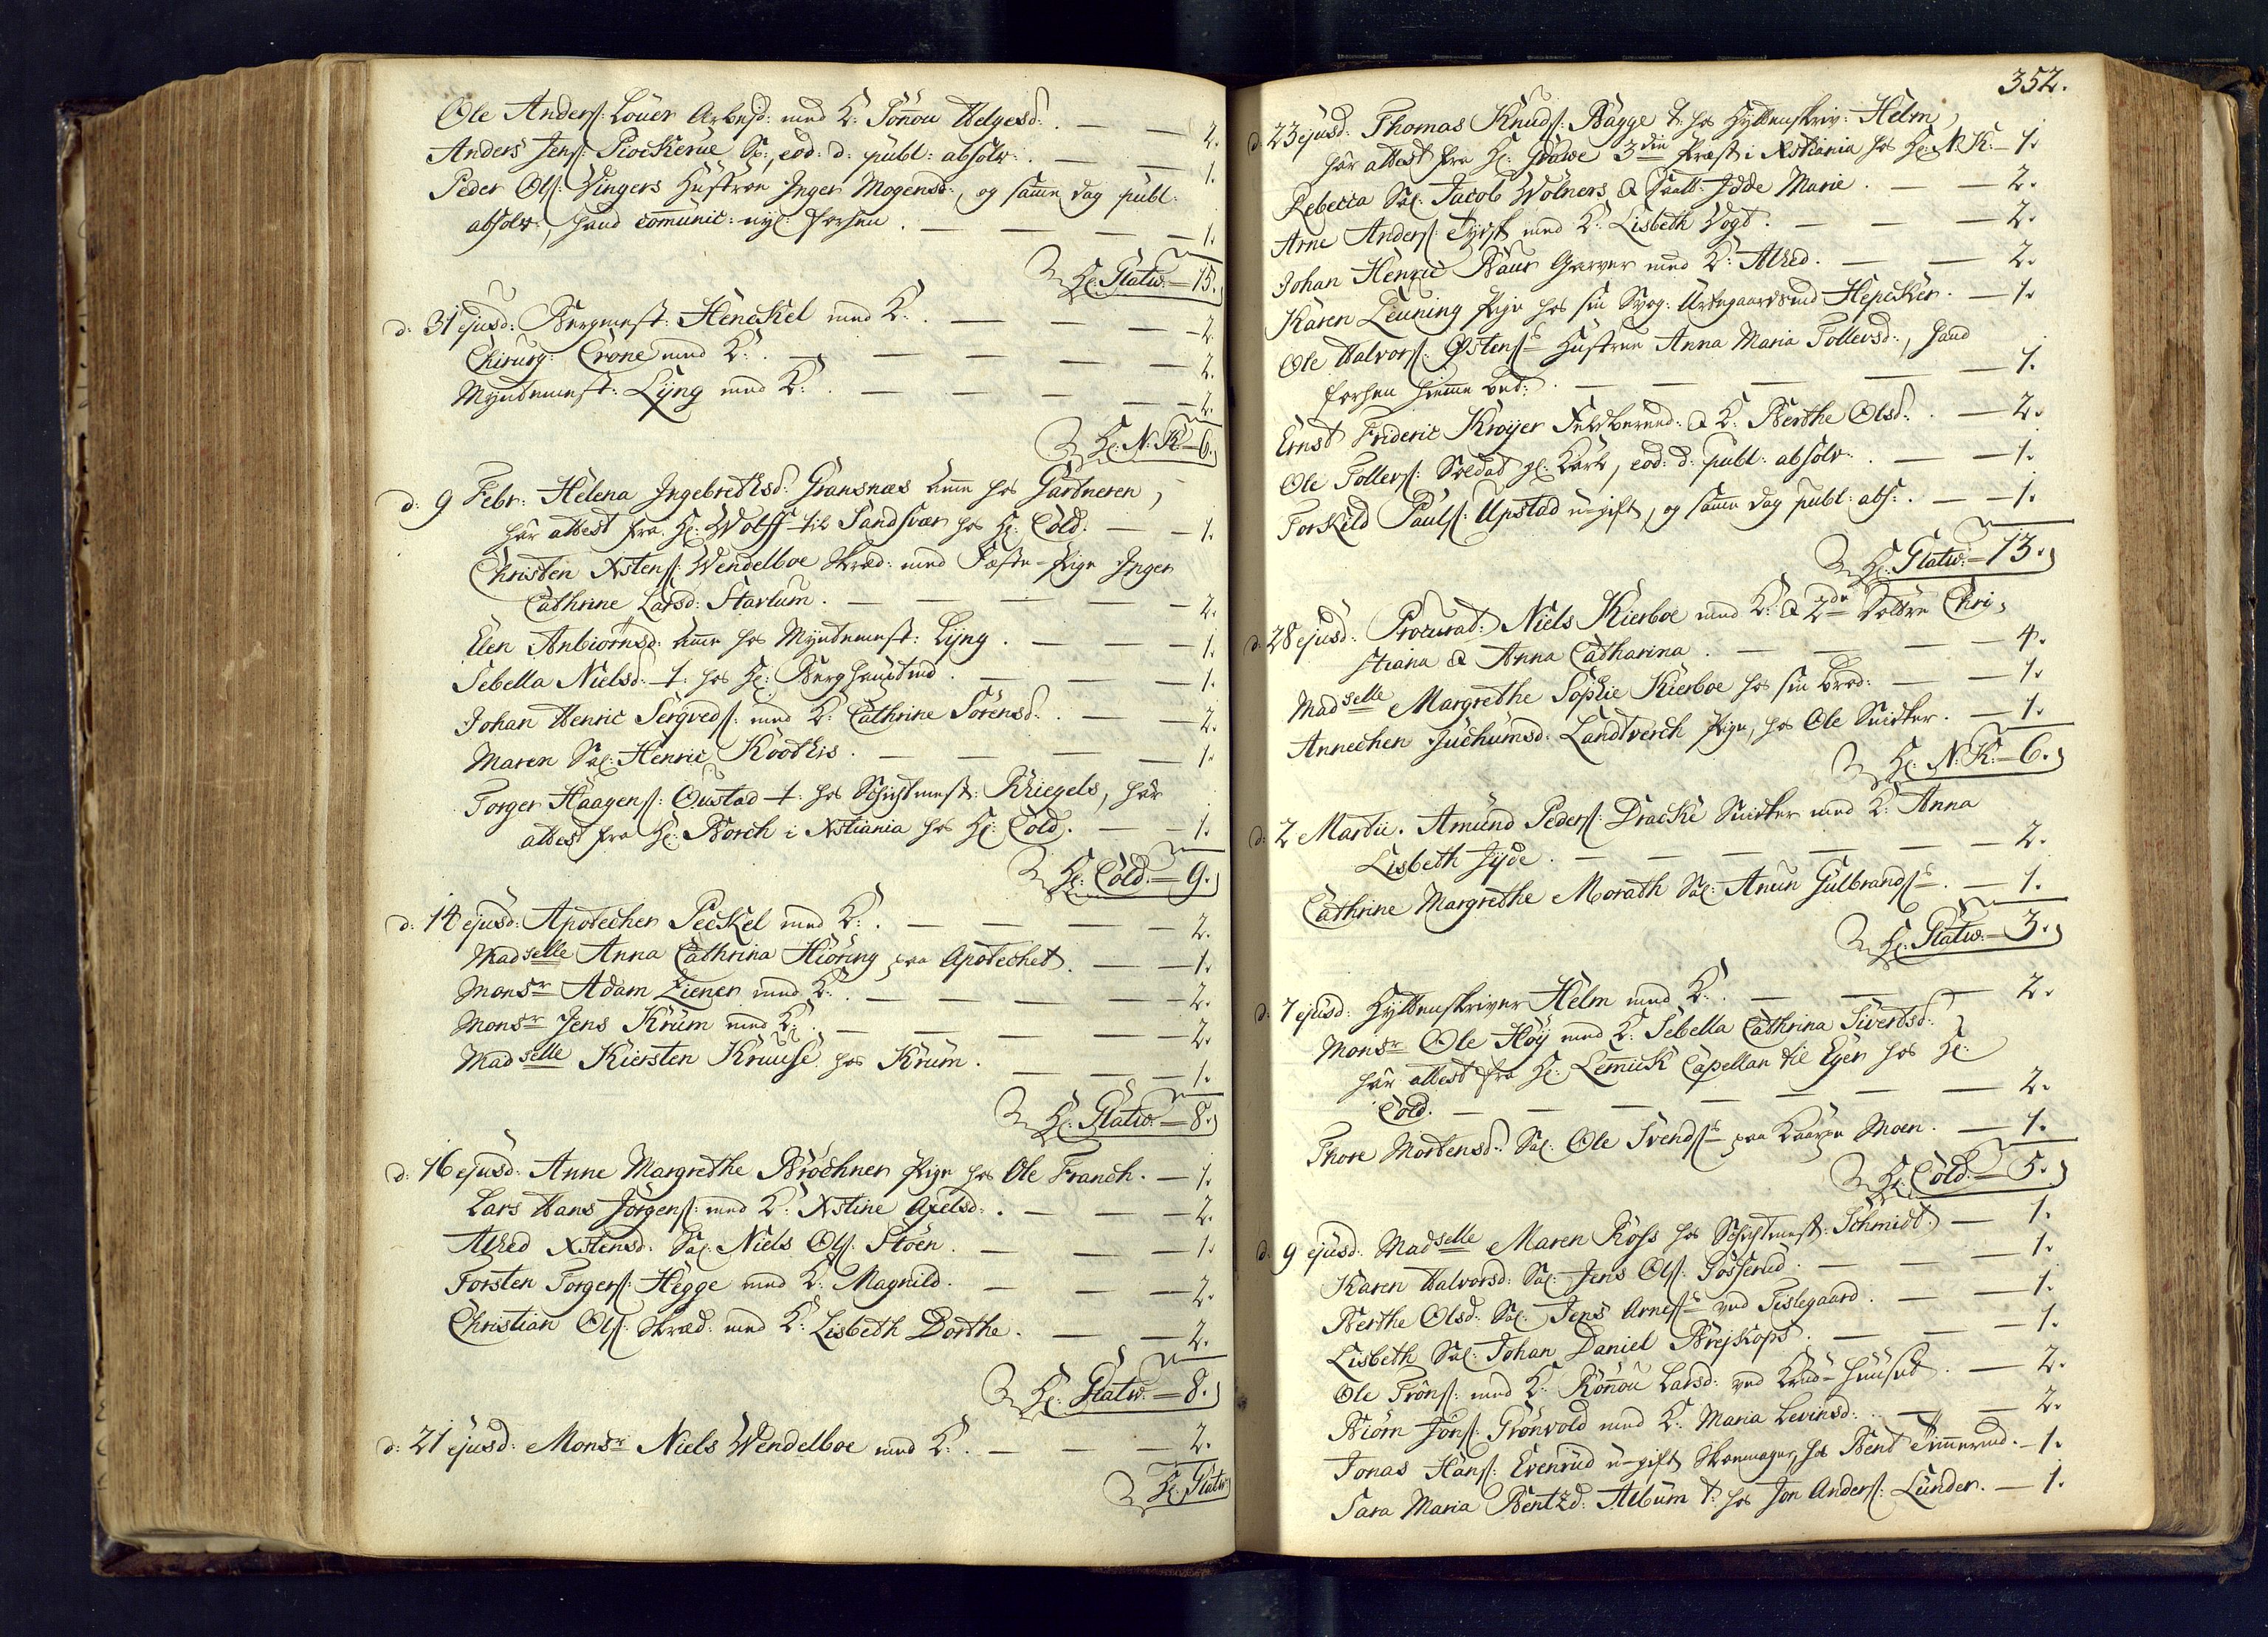 Ole Anders: Löver Arbejd: med K: Rönnou Helgesd: . — — 2.
Anders Jens: Plockerue Sr:, eod: d: publ: absolv: . — — 1.
Peder Ols: Vingers Hustrue Inger Mogensd:, og samme dag publ:
absolv:, hand communic: nyl: forhen . — — — — 1.
Hr: Glatw: — 15.
d: 31 ejusd: Bergmest: Henckel med K: . — — — — 2.
Chirurg: Crone med K: . — — — — 2.
Myntemest: Lyng med K: . — — — — 2.
Hr: N: K: — 6.
d: 9 Febr: Helena Ingebrethsd: Gransnæs Amme hos Gartneren,
har attest fra Hr: Wolff til Sandsvær hos Hr: Cold. — — 1.
Christen Xstens: Wendelboe Skræd: med Fæste-Pige Inger
Cathrine Larsd: Starlum . — — — — 2.
Elen Anbiörnsd: Amme hos Myntemest: Lyng . — — — 1.
Sebella Nielsd: t: hos Hr: Berghauptmd . — — — 1.
Johan Henric Sergveds: med K: Cathrine Sörensd: . — — 2.
Maren Sal: Henric Koothis . — — — 1.
Torger Haagens: Oustad t: hos Schichtmest: Kriegels, har
attest fra Hr: Borch i Xstiania hos Hr: Cold. — — 1.
Hr: Cold. — 9.
d: 14 ejusd: Apotecher Peckel med K: . — — — — 2.
Madselle Anna Cathrina Hiöring paa Apotechet . — — 1.
Monsr Adam Ziener med K: . — — — — 2.
Monsr Jens Krum med K: . — — — — 2.
Madselle Kiersten Kruuse hos Krum . — — — 1.
Hr: Glatw: — 8.
d: 16 ejusd: Anne Margrethe Bröchner Pige hos Ole Franch. — 1.
Lars Hans Jörgens: med K: Xstine Axelsd: . — — — 2.
Alhed Xstensd: Sal: Niels Ols: Stöen . — — — 1.
Torsten Torgers: Hegge med K: Magnild . — — — 2.
Christian Ols: Skræd: med K: Lisbeth Dorthe . — — 2.
Hr: Glatw: — 8.
d: 21 ejusd: Monsr Niels Wendelboe med K: . — — — 2.
Hr: Glatw:
352.
d: 23 ejusd: Thomas Knuds: Bagge t: hos Hyttenskriv: Helm,
har attest fra Hr: Grave 3die Præst i Xstiania hos Hr: N: K: — 1.
Rebecca Sal: Jacob Wölners & Datt: Idde Marie . — — 2.
Arne Anders: Tydsk med K: Lisbeth Vogt . — — — 2.
Johan Henric Baur Garver med K: Alhed . — — 2.
Karen Leuning Pige hos sin Svog: Urtegaardsmd Hepcker . — 1.
Ole Halvors: Östens:s Hustrue Anna Maria Tollevsd:, hand
forhen hiemme bet: . — — — — 1.
Ernst Frideric Kroyer Feldbered: & K: Berthe Olsd: . — 2.
Ole Tollevs: Soldat gl: Karl, eod: d: publ: absolv: . — — 1.
Torkild Pauls: Upstad u-gift, og samme dag publ: abs: . — — 1.
Hr: Glatw: — 13.
d: 28 ejusd: Procurat: Niels Kierboe med K: & 2de Döttre Chri-
stiana & Anna Catharina . — — — 4.
Madselle Margrethe Sophie Kierboe hos sin brod: — — 1.
Annechen Juchumsd: Landtverch Pige, hos Ole Snidker . — 1.
Hr: N: K: — 6.
d: 2 Martii. Amund Peders: Dracke Snidker med K: Anna
Lisbeth Jyde . — — — — — 2.
Cathrine Margrethe Morath Sal: Anun Gulbrands:s . — 1.
Hr: Glatw: — 3.
d: 7 ejusd: Hyttenskriver Helm med K: . — — — 2.
Monsr Ole Höy med K: Sebella Cathrina Sivertsd:,
har attest fra Hr: Lemmick Capellan til Eger hos Hr:
Cold. — — — — — — 2.
Thore Mortensd: Sal: Ole Svends:s paa Kaarpe Moen . — 1.
Hr: Cold. — 5.
d: 9 ejusd: Madselle Maren Ross hos Schichtmest: Schmidt. — 1.
Karen Halvorsd: Sal: Jens Ols: Fosserud . — — 1.
Berthe Olsd: Sal: Jens Arnes:s ved Tislegaard . — — 1.
Lisbeth Sal: Johan Daniel Brejkops . — — — 1.
Ole Tröns: med K: Rönnou Larsd: ved Krud-Huuset . — 2.
Biörn Jöns: Grönvold med K: Maria Levinsd: . — — 2.
Jonas Hans: Evenrud u-gift Skoemager, hos Bent Timmermd. — 1.
Sara Maria Bentzd: Album t: hos Jon Anders: Lunder . — 1.